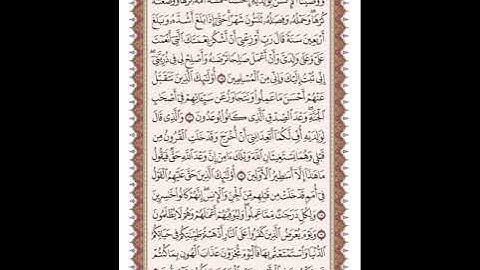 ووصينا الإنسن بولديه إحسنا حملته أمه كرها ووضعته
كرها وحمله وفصله ثلثون شهرا حتى إذا بلغ أشده وبلغ
أربعين سنة قال رب أوزعني أن أشكر نعمتك التي أنعمت
علي وعلى ولدي وأن أعمل صلحا ترضىه وأصلح لي في ذريتي
إني تبت إليك وإني من المسلمين أولئك الذين نتقبل
عنهم أحسن ما عملوا ونتجاوز عن سيئاتهم في أصحب
الجنة وعد الصدق الذي كانوا يوعدون والذي قال
لولديه أف لكما أتعدانني أن أخرج وقد خلت القرون من
قبلي وهما يستغيثان الله ويلك ءامن إن وعد الله حق فيقول
ما هذا إلا أسطير الأولين أولئك الذين حق عليهم القول
في أمم قد خلت من قبلهم من الجن والإنس إنهم كانوا خسرين
ولكل درجت مما عملوا وليوفيهم أعملهم وهم لا يظلمون
ويوم يعرض الذين كفروا على النار أذهبتم طيبتكم في حياتكم
الدنيا واستمتعتم بها فاليوم تجزون عذاب الهون بما كنتم